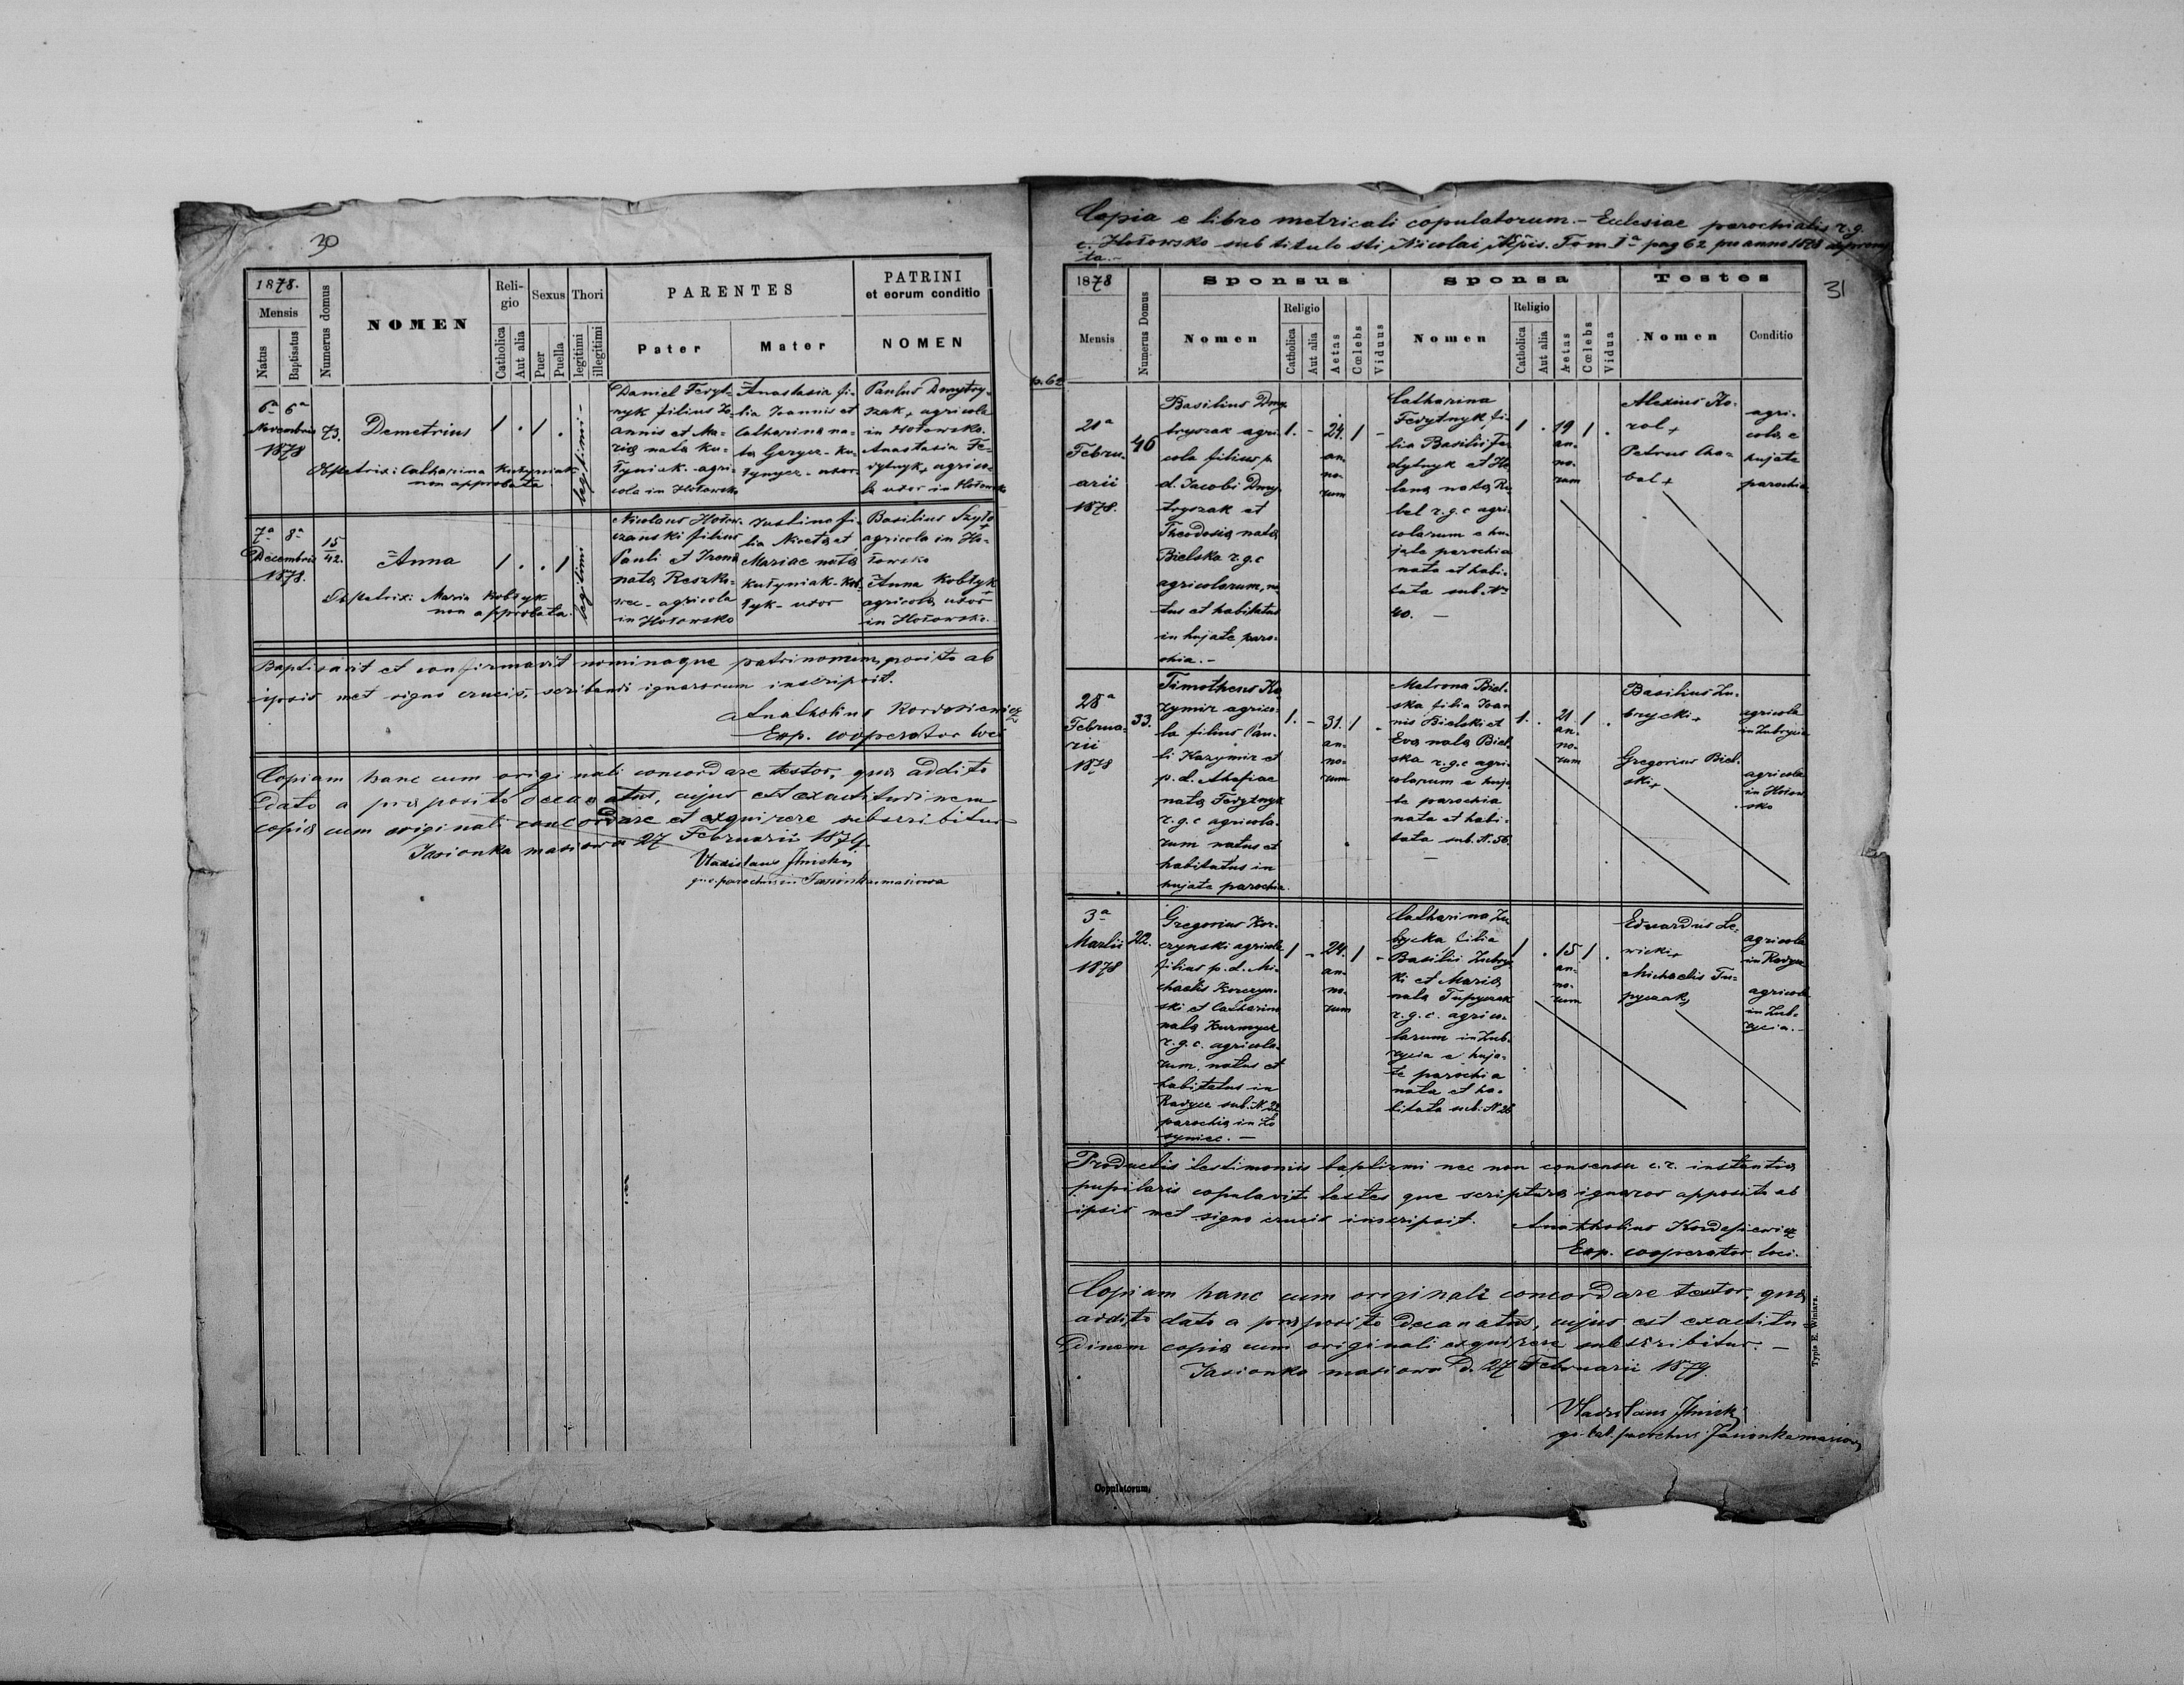 30
1878.
Mensis
Natus
Baptisatus
Numerus domus
NOMEN
Reli-
gio
Catholica
Aut alia
Sexus
Puer
Puella
Thori
legitimi
illegitimi
PARENTES
Pater
Mater
PATRINI
et eorum conditio
NOMEN
6a 6a
Novembris
1878
73.
Demetrius
1 . 1 .
legitimi -
Obstetrix: Catharina Kutyniak
non approbata
Daniel Fedyt-
nyk filius Jo-
annis et Ma-
ria nata Ku-
tyniak - agri-
cola in Hołowsko
Anastasia fi-
lia Joannis et
Catharina na-
ta Gerycz - Ku-
tynycz - uxor
Paulus Dmytry-
szak + agricola
in Hołowsko.
Anastasia Fe-
dytnyk + agrico-
la uxor in Hołowsko
7a 8a
Decembris
1878.
15
42.
Anna
1 . . 1
legitimi
Obstetrix: Maria Kobtyk
non approbata.
Nicolaus Hołow-
czanski filius
Pauli et Irena
nata Reszko-
wec - agricola
in Hołowsko
Justina fi-
lia Niceta et
Mariae nata
Kutyniak - Kob-
tyk - uxor
Basilius Szyło +
agricola in Ho-
łowsko
Anna Kobtyk +
agricola uxor
in Hołowsko.
Baptisavit et confirmavit nominaque patrinorum, posito ab
ipsis met signo crucis, scribendi ignarorum inscripsit.
Anatholius Kordasiewicz
Exp. cooperator loci
Copiam hanc cum originali concordare testor, qua addito
dato a praeposito decanatus, cujus est exactitudinem
copia cum originali concordare et exquirere subscribitur
Jasionka masiowa 27 Februarii 1879.
Vladislaus Ilnicki
gr. c. parochus in Jasionkamasiowa
Copia e libro metricali copulatorum.- Ecclesiae parochialis r. g.
c. Hołowsko sub titulo sti Nicolai Tom Ia pag 62 pro anno 1878
ta.-
31
p. 62
1878
Mensis
Numerus Domus
Sponsus
Nomen
Religio
Catholica
Aut alia
Aetas
Cœlebs
Viduus
Sponsa
Nomen
Religio
Catholica
Aut alia
Aetas
Cœlebs
Vidua
Testes
Nomen
Conditio
21a
Febru-
arii
1878.
46
Basilius Dmy-
tryszak agri-
cola filius p.
d. Jacobi Dmy-
tryszak et
Theodosia nata
Bielska r.g.c
agricolarum, na-
tus et habitatus
in hujate paro-
chia.-
1. - 24. 1 -
an-
no-
rum
Catharina
Fedytnyk fi-
lia Basilii Fe-
dytnyk et He-
lena nata Ru-
bel r.g.c agri-
colarum e hu-
jate parochia
nata et habi-
tata sub. No
40. -
1 . 19 1 .
an-
no-
rum
Alexius Ko-
rol +
Petrus Cho-
bal +
agri-
cola e
hujate
parochia
28a
Februa-
rii
1878
33.
Timotheus Ka-
zymir agrico-
la filius Pau-
li Kazymir et
p. d. Ahafiae
nata Fedytnyk
r.g.c agricola-
rum natus et
habitatus in
hujate parochia.
1. - 31. 1 .
an-
no-
rum
Matrona Biel-
ska filia Joan-
nis Bielski et
Eva nata Biel-
ska r.g.c agri-
colarum e huja-
te parochia
nata et habi-
tata sub. N. 56.
-
1. . 21. 1 .
an-
no-
rum
Basilius Zu-
brycki +
Gregorius Biel-
ski +
agricola
in Zubrycia
agricola
in Hołow-
sko
3a
Martii
1878
22.
Gregorius Kor-
czynski agricola
filius p. d. Mi-
chaelis Korczyn-
ski et Catharina
nata Kurmycz
r.g.c. agricola-
rum, natus et
habitatus in
Radycz sub. N 22
parochia in Lo
syniec. -
1 - 24. 1 -
an-
no-
rum
Catharina Zu
brycka filia
Basilii Zubryc
ki et Maria
nata Tupyczak
r.g.c. agrico-
larum in Zub-
rycia e huja-
te parochia
nata et ha-
bitata sub. N 26
1 . 15 1 .
an-
no-
rum
Eduardus Le-
wicki +
Michaelis Tu-
pyczak +
agricola
in Radycz
agricola
in Zub-
rycia.-
Productis testimoniis baptismi nec non consensu c.r. instantia
pupilaris copulavit testes que scriptura ignaros apposito ab
ipsis met signo crucis inscripsit.
Anathholius Kordasiewicz
Exp. cooperator loci.
Copiam hanc cum originali concordare testor, qua
addito dato a praeposito decanatus, cujus est exactitu-
dinem copia cum originali exquirere subscribitur. -
Jasionka masiowa D. 27 Februarii 1879.
Vladislaus Ilnicki
gr. cat. parochus Jasionkamasiowa
Typis E. Winiarz.
Copulatorum.